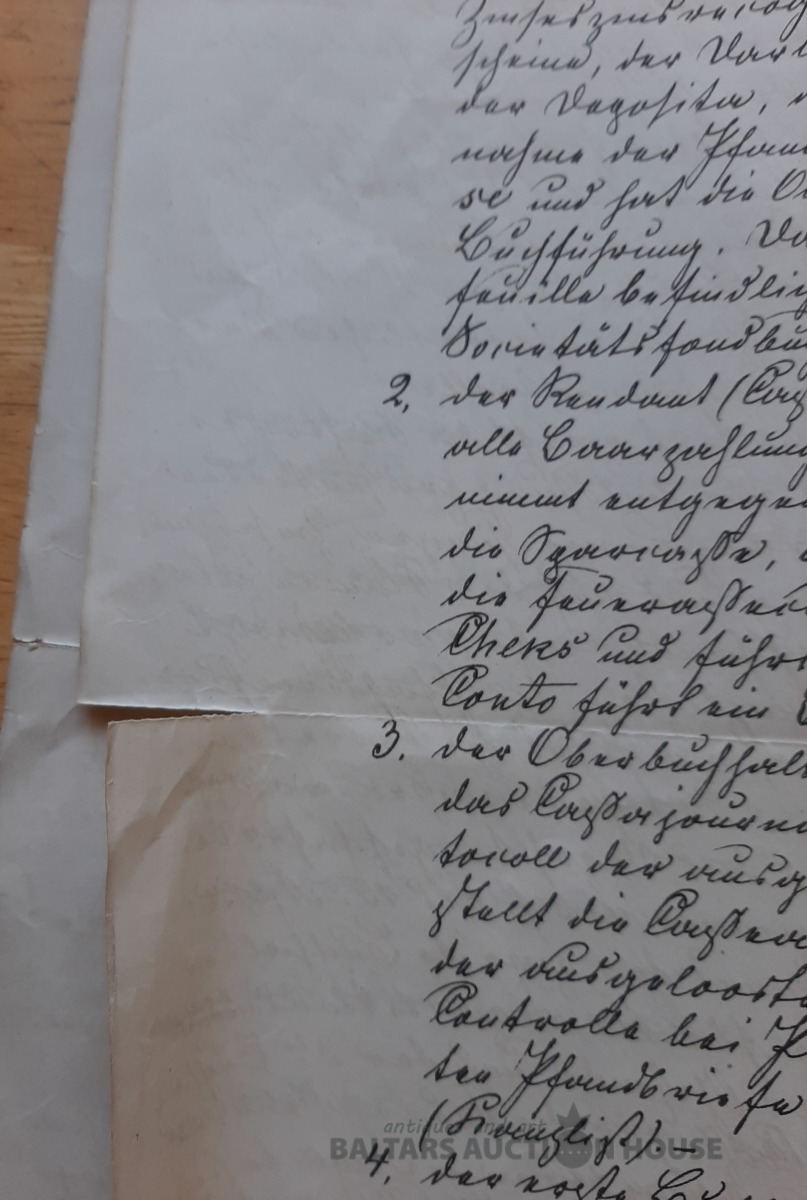 Zinseszinsrecog
scheine, der Darl
der Deposita,
nahme der Pfan
se und hat die O
Buchführung. Da
feuille befindlic
Societätsfondbü
2. der Rendant (Cas
alle Baarzahlung
nimmt entgegen
die Sparcasse,
die Feuerassec
Cheks und führt
Conto führt ein
3. der Oberbuchhalt
das Cassajourna
tocoll der ausg
stellt die Cassen
der ausgeloosta
Controlle bei P
ten Pfandbriefe
(Kanzlist). –
4. der erste
antique and art
BALTARS AUCTION HOUSE